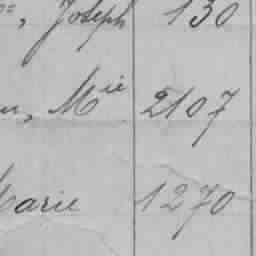 Joseph 130
Mie 2107
Marie 1270